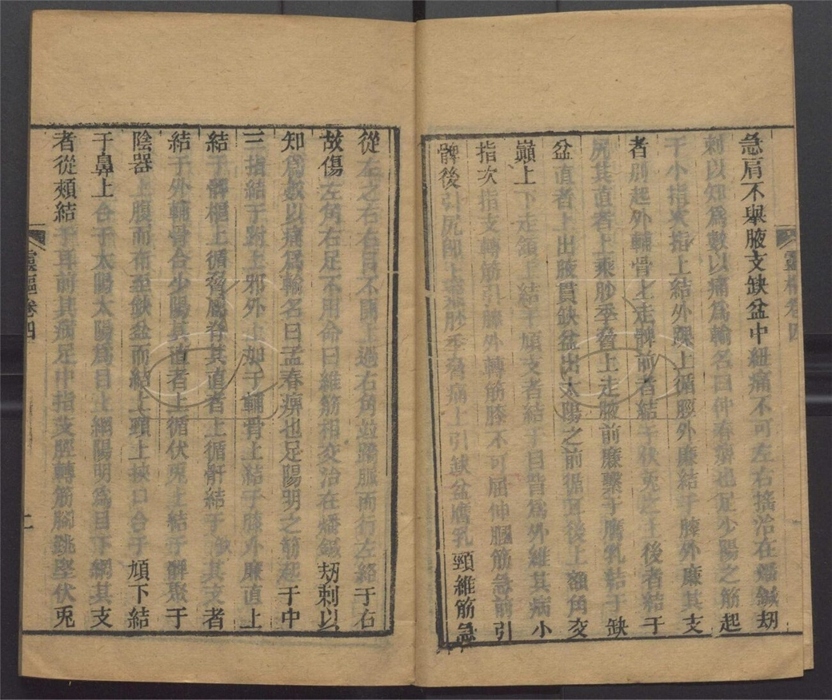 急肩不舉腋支缺盆中紐痛不可左右搖治在燔鍼刼
刺以知爲數以痛爲輸名曰仲春痹也足少陽之筋起
于小指次指上結外踝上循脛外廉結于膝外廉其支
者別起外輔骨上走髀前者結于伏兎之上後者結于
尻其直者上乘䏚季脅上走腋前廉繫于膺乳結于缺
盆直者上出腋貫缺盆出太陽之前循耳後上額角交
巔上下走頷上結于頄支者結于目眥爲外維其病小
指次指支轉筋引膝外轉筋膝不可屈伸膕筋急前引
髀後引尻即上乘䏚季脅痛上引缺盆膺乳頸維筋急
從左之右右目不開上過右角並蹻脈而行左絡于右
故傷左角右足不用命曰維筋相交治在燔鍼刼刺以
知爲數以痛爲輸名曰孟春痹也足陽明之筋起于中
三指結于跗上邪外上加于輔骨上結于膝外廉直上
結于髀樞上循脅屬脊其直者上循骭結于其支者
結于外輔骨合少陽其直者上循伏兎上結于髀聚于
陰器上腹而布至缺盆而結上頸上挾口合于頄下結
于鼻上合于太陽太陽爲目上網陽明爲目下網其支
者從頰結于耳前其病足中指支脛轉筋脚跳堅伏兎
靈樞卷四
靈樞卷四
二